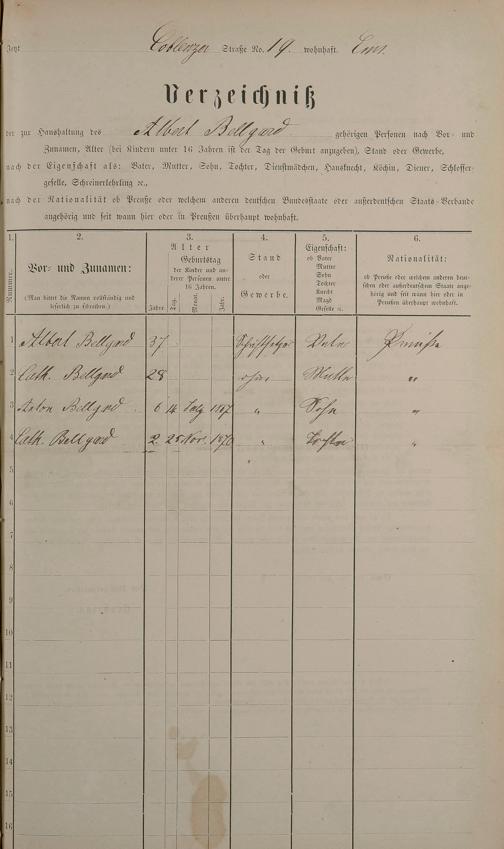 Jetzt Coblenzer Straße No. 19. wohnhaft. Ems.
Verzeichniß
der zur Haushaltung des Albert Bellgard gehörigen Personen nach Vor- und
Zunamen, Alter (bei Kindern unter 16 Jahren ist der Tag der Geburt anzugeben), Stand oder Gewerbe,
nach der Eigenschaft als: Vater, Mutter, Sohn, Tochter, Dienstmädchen, Hausknecht, Köchin, Diener, Schlosser-
geselle, Schreinerlehrling ꝛc.,
nach der Nationalität ob Preuße oder welchem anderen deutschen Bundesstaate oder außerdeutschen Staats-Verbande
angehörig und seit wann hier oder in Preußen überhaupt wohnhaft.
1. 2. 3. 4. 5. 6.
Nummer.
Vor- und Zunamen:
(Man bittet die Namen vollständig und
leserlich zu schreiben.)
Alter
Geburtstag
der Kinder und an-
derer Personen unter
16 Jahren.
Jahre. Tag. Monat. Jahr.
Stand
oder
Gewerbe.
Eigenschaft:
ob Vater
Mutter
Sohn
Tochter
Knecht
Magd
Geselle ꝛc.
Nationalität:
ob Preuße oder welchem anderen deut-
schen oder außerdeutschen Staate ange-
hörig und seit wann hier oder in
Preußen überhaupt wohnhaft.
1 Albert Bellgard 37 Schriftsetzer Vater Preuße
2 Cath. Bellgard 28 ohne Mutter "
3 Anton Bellgard. 6 14 July 1867 " Sohn "
4 Cath. Bellgard 2 25 Nov. 1870 " Tochter "
5
6
7
8
9
10
11
12
13
14
15
16